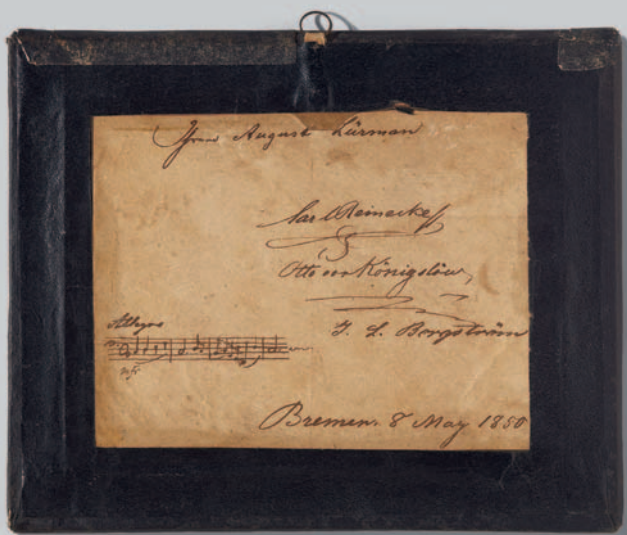 Herrn August Lürman
Carl Reinecke
Otto von Königslöw,
J. L. Bergström
Allegro
Bremen. 8 May 1850